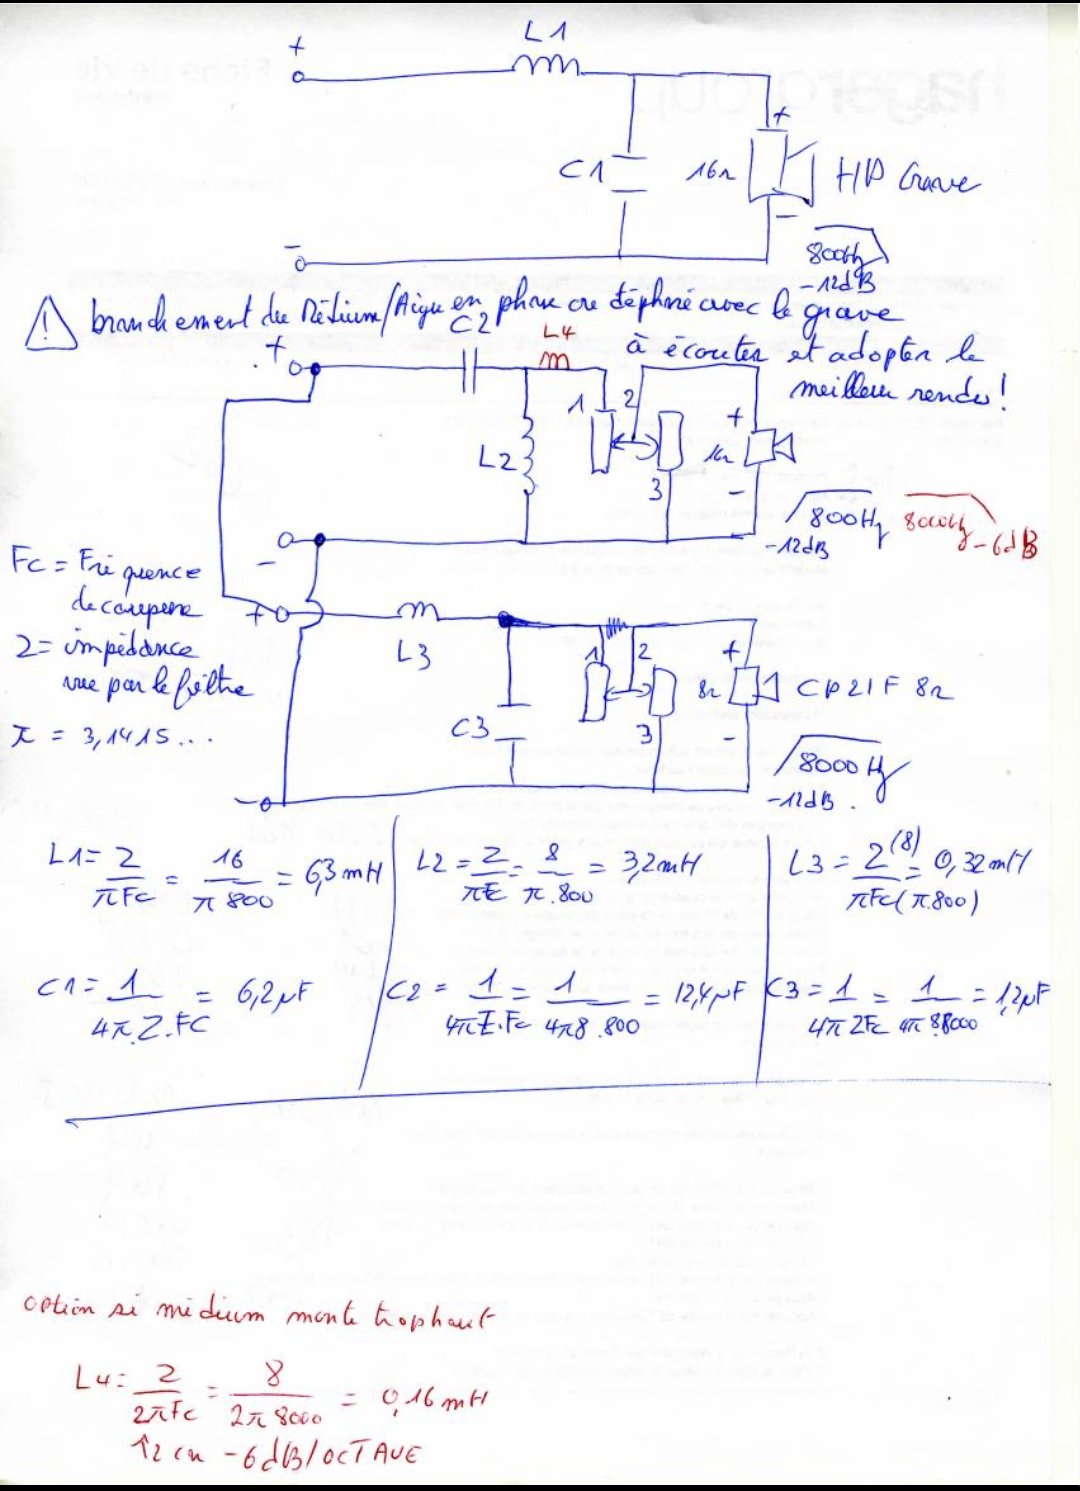 L1
+
C1
16Ω
+
HP Grave
-
-
800Hz
-12dB
! branchement du Médium/Aigu en phase ou déphasé avec le grave
à écouter et adopter le
meilleur rendu!
+
C2
L4
1
2
L2
+
-
3
-
800Hz
-12dB
8000Hz
-6dB
Fc = Fréquence
de coupure
Z = impédance
vue par le filtre
π = 3,1415...
+
L3
1
2
+
C3
8Ω
CP21F 8Ω
3
-
-
8000Hz
-12dB.
L1 = Z/πFc = 16/π 800 = 6,3mH
L2 = Z/πFc = 8/π.800 = 3,2mH
L3 = Z(8)/πFc(π.800) = 0,32mH
C1 = 1/4π.Z.FC = 6,2µF
C2 = 1/4πZ.Fc = 1/4π8.800 = 12,4µF
C3 = 1/4πZFc = 1/4π 8.8000 = 1,2µF
option si médium monte trop haut
L4 = Z/2πFc = 8/2π 8000 = 0,16mH
-6dB/OCTAVE